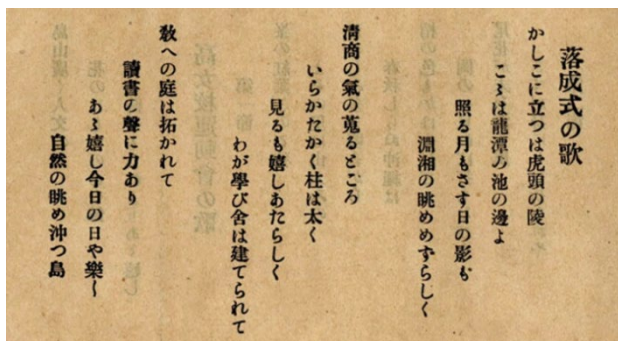 落成式の歌
かしこに立つは虎頭の陵
こゝは龍潭の池の邊よ
照る月もさす日の影も
淵湘の眺めめずらしく
淸商の氣の蒐るところ
いらかたかく柱は太く
見るも嬉しあたらしく
わが學び舍は建てられて
敎への庭は拓かれて
讀書の聲に力あり
あゝ嬉し今日の日や樂し
自然の眺め沖つ島